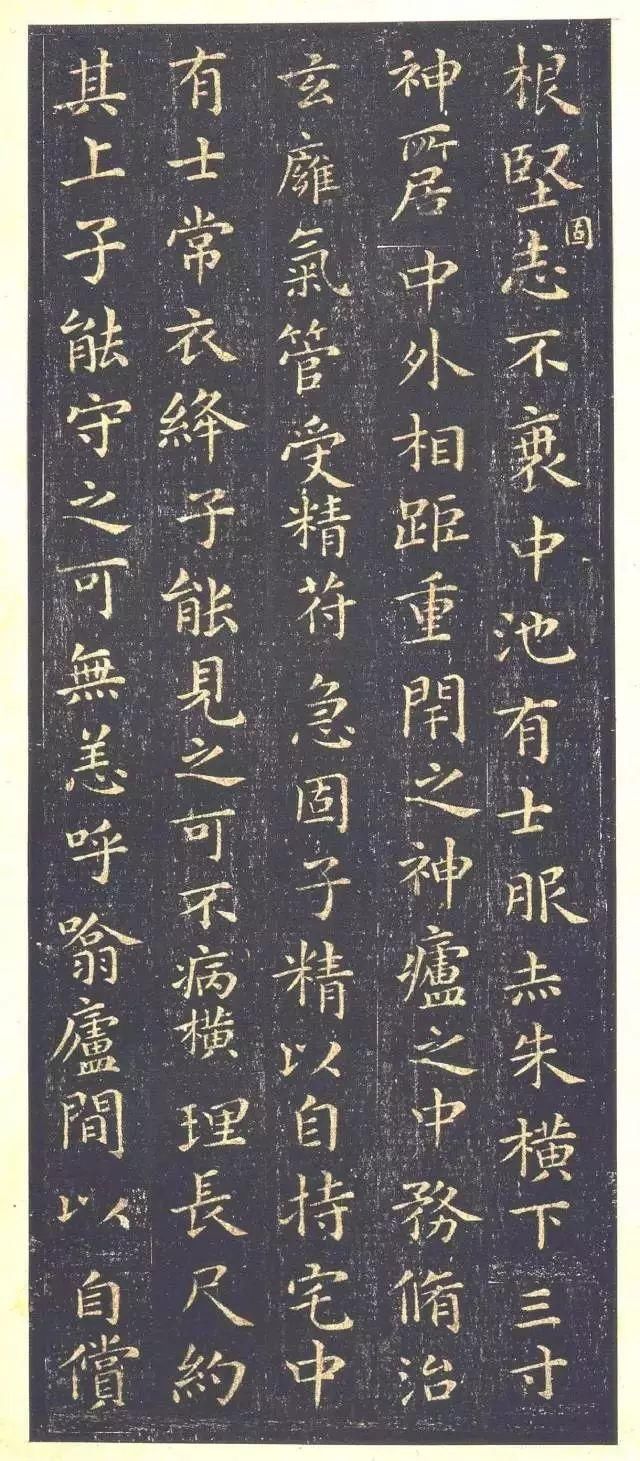 根堅志不衰中池有士服赤朱橫下三寸
固
神所居中外相距重閇之神廬之中務脩治
玄廱氣管受精苻急固子精以自持宅中
有士常衣絳子能見之可不病橫理長尺約
其上子能守之可無恙呼噏廬間以自償